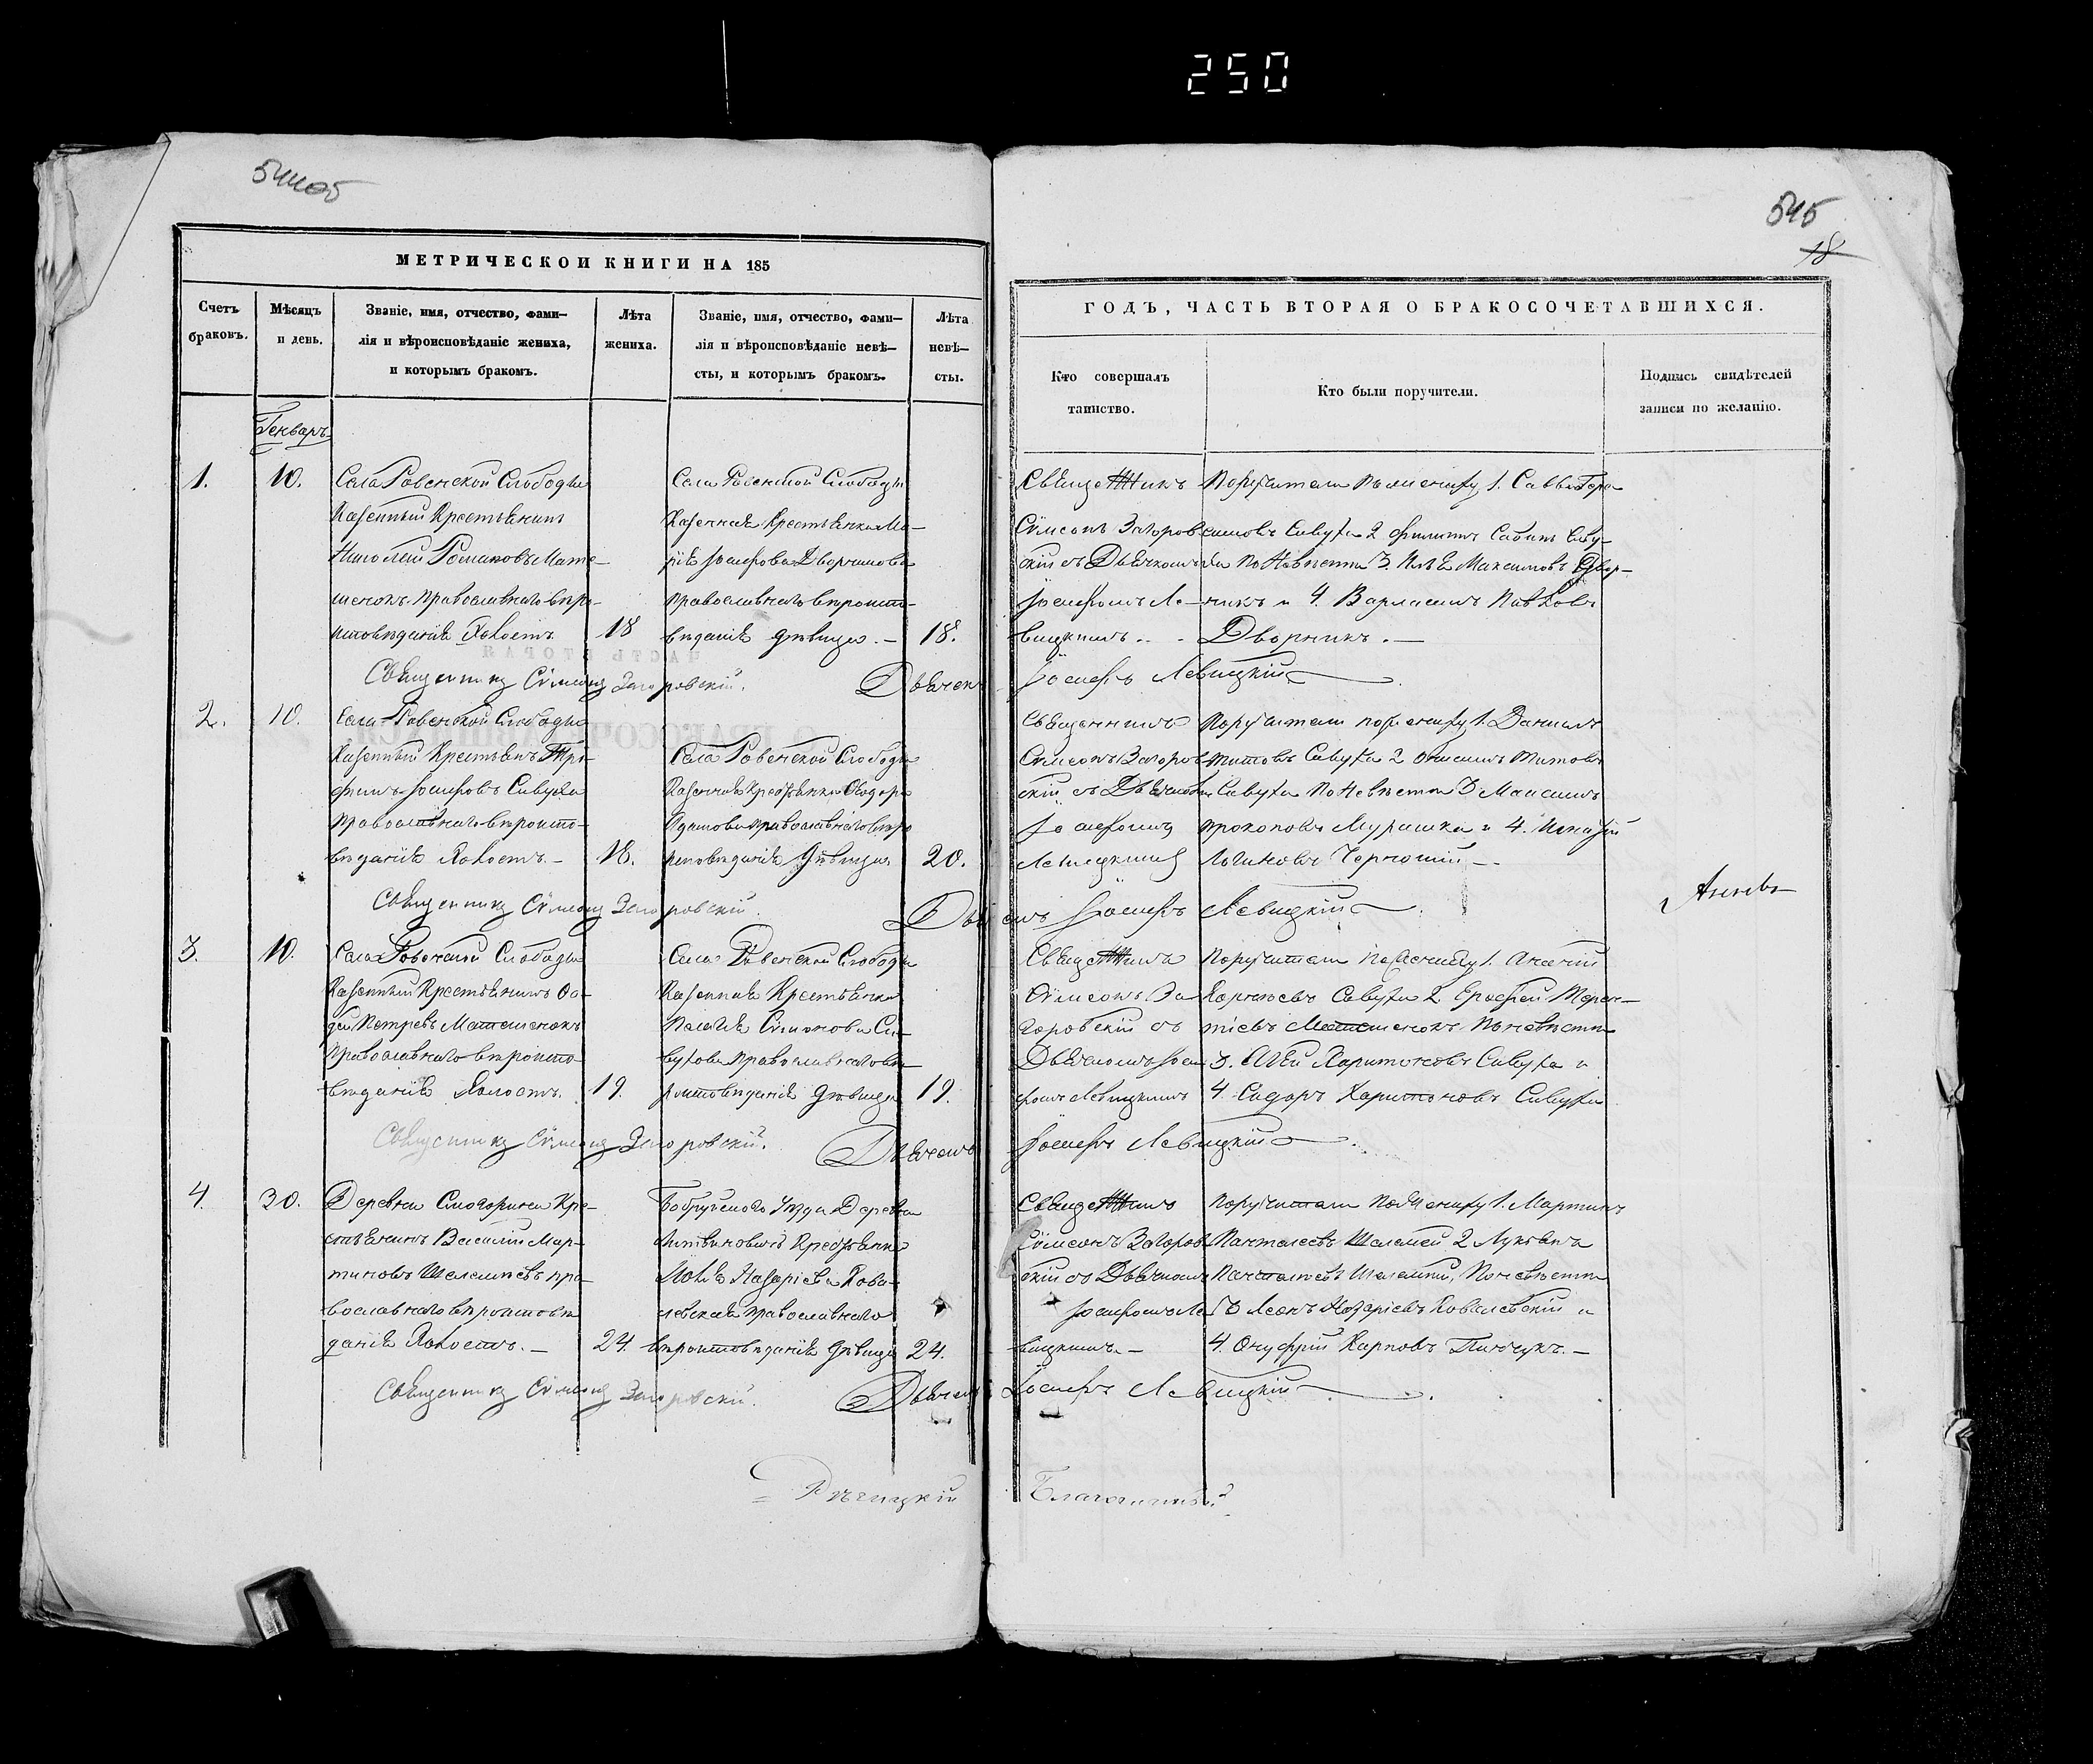 250
544об
545
18
МЕТРИЧЕСКОИ КНИГИ НА 185
ГОДЪ, ЧАСТЬ ВТОРАЯ О БРАКОСОЧЕТАВШИХСЯ.
Счетъ браковъ.
Мѣсяцъ и день.
Званіе, имя, отчество, фами-
лія и вѣроисповѣданіе жениха,
и которымъ бракомъ.
Лѣта жениха.
Званіе, имя, отчество, фами-
лія и вѣроисповѣданіе невѣ-
сты, и которымъ бракомъ.
Лѣта невѣ-
сты.
Кто совершалъ
таинство.
Кто были поручители.
Подпись свидѣтелей
записи по желанію.
Генварь
1.
10.
Села Ровенской Слободы
Казенный Крестьянинъ
Николай Романовъ Мате-
шенокъ православнаго вѣро-
исповѣданія Холостъ
18
Села Ровенской Слободы
Казенная Крестьянка Ма-
рія Іосифова Дворникова
православнаго вѣроиспо-
вѣданія дѣвица. —
18.
Священникъ
Сѵмеонъ Загоров
скій съ Дьячкомъ
Іосифомъ Ле-
вицкимъ
Поручители по жениху 1. Савва Гера-
симовъ Сивуха 2 Филиппъ Савинъ Сиву-
ха по Невѣсти 3. Илья Максимовъ Двор-
никъ и 4. Варламъ Павловъ
Дворникъ. —
Священникъ Сѵмеонъ Загоровскій. Дьячекъ Іосифъ Левицкій
2.
10.
Села Ровенской Слободы
Казенный Крестьянъ Тро-
фимъ Іосифовъ Сивуха
православнаго вѣроиспо-
вѣданія Холостъ. —
18.
Села Ровенской Слободы
Казенная Крестьянка Ѳеодора
Адамова православнаго вѣро
исповѣданія дѣвица
20.
Священникъ
Сѵмеонъ Загоров
скій съ Дьячкомъ
Іосифомъ
Левицкимъ
Поручители по жениху 1. Данилъ
Титовъ Сивуха 2 Титовъ
Сивуха По Невѣсти 3
Прокоповъ Мурашка и 4.
Логиновъ
Священникъ Сѵмеонъ Загоровскій. Дьячекъ Іосифъ Левицкій
3.
10.
Села Ровенской Слободы
Казенный Крестьянинъ Ѳа-
дей Петровъ Матешенокъ
православнаго вѣроиспо-
вѣданія Холостъ.
19.
Села Ровенской Слободы
Казенная Крестьянка
Пелагія Симонова Си-
вухова православнаго вѣ-
роисповѣданія дѣвица
19.
Священникъ
Сѵмеонъ За
горовскій съ
Дьячкомъ Іоси
фомъ Левицкимъ
Поручители По Жениху 1.
Корнѣевъ Сивуха 2. Ерофей Терен-
тіевъ Матешенокъ По невѣсти
3. Харитоновъ Сивуха и
4. Сидоръ Харитоновъ Сивуха
Священникъ Сѵмеонъ Загоровскій. Дьячекъ Іосифъ Левицкій
4.
30.
Деревни Смогорина Кре-
стьянинъ Василій Мар-
тиновъ Шелемѣевъ пра-
вославнаго вѣроисповѣ
данія Холостъ. —
24.
Бобруйскаго Уѣзда Деревни
Литвиновичъ Крестьянка
Назаріева Кова-
левская православнаго
вѣроисповѣданія дѣвица
24.
Священникъ
Сѵмеонъ Загоров
скій съ Дьячкомъ
Іосифомъ Ле
вицкимъ —
Поручители По Жениху 1. Мартинъ
Пантелеевъ Шелемей 2 Лукьянъ
Пантелѣевъ Шелемей, По невѣсти
3 Леонъ Назаріевъ Ковалевскій и
4. Онуфрій Карповъ Пинчукъ. —
Священникъ Сѵмеонъ Загоровскій. Дьячекъ Іосифъ Левицкій
Рѣчицкій Благочинный